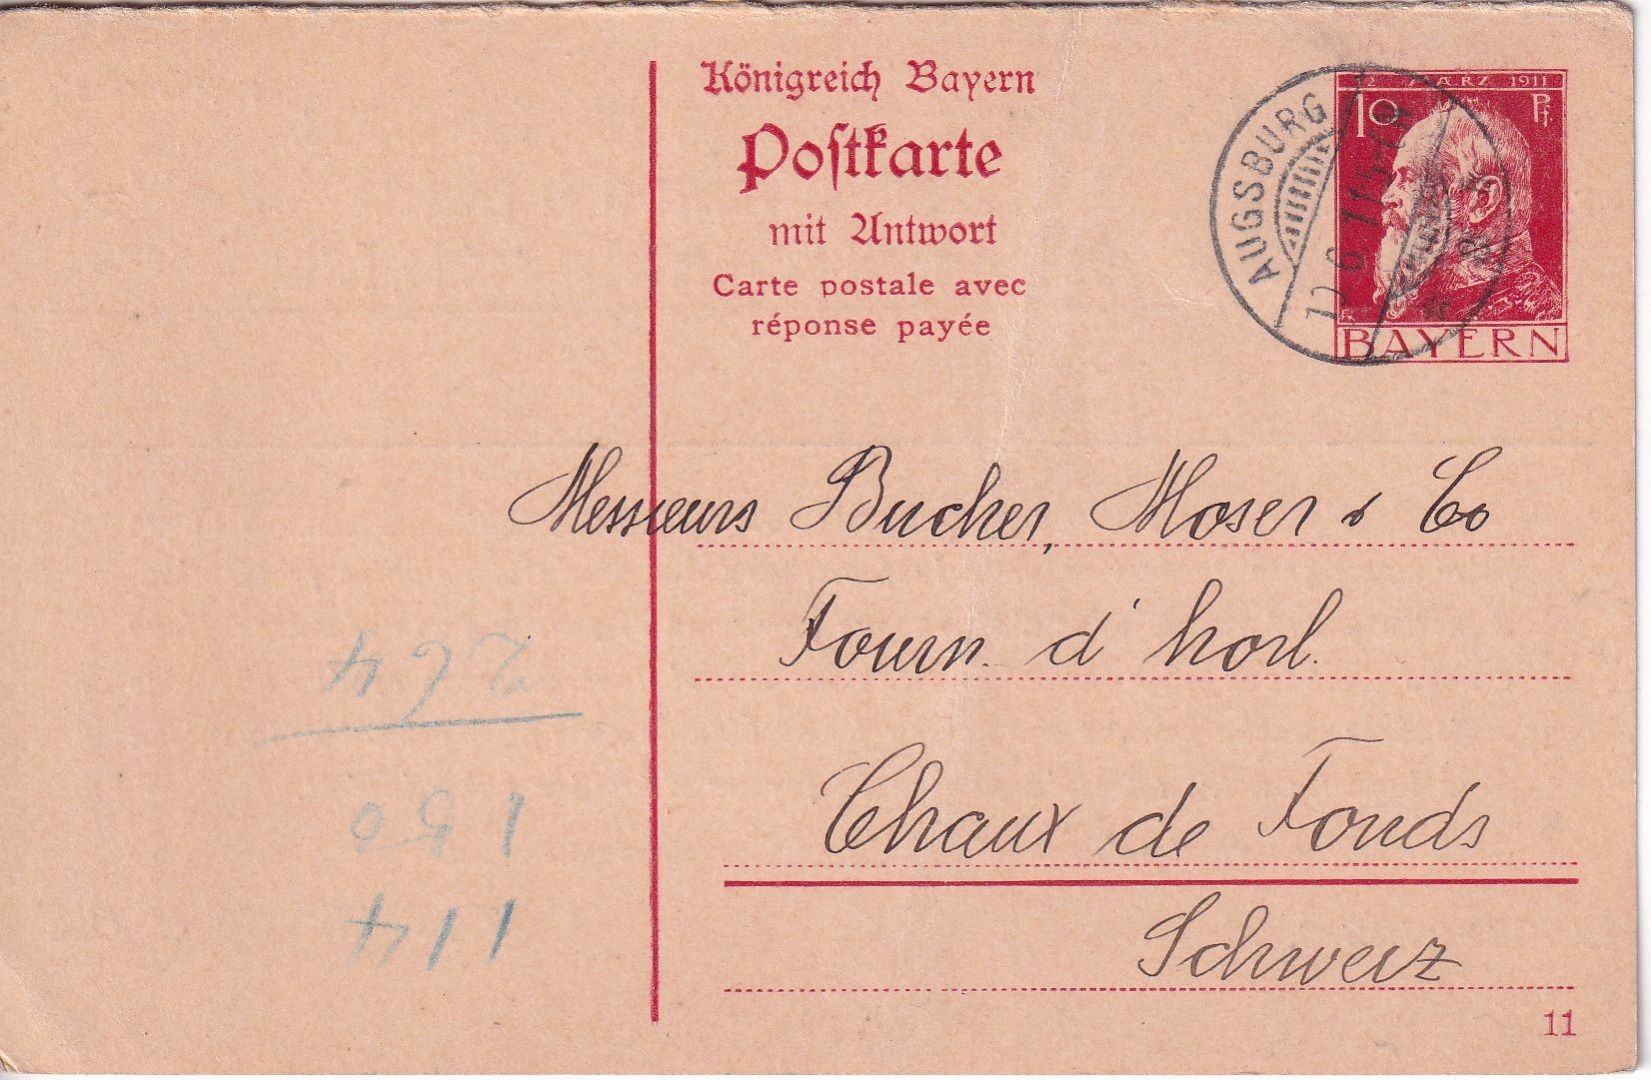 Königreich Bayern
Postkarte
mit Antwort
Carte postale avec
réponse payée
12 MÄRZ 1911
10 Pf
BAYERN
AUGSBURG
Messieurs Bucher, Moser & Co
Fourn. d'horl.
Chaux de Fonds
Schweiz
11
114
150
264